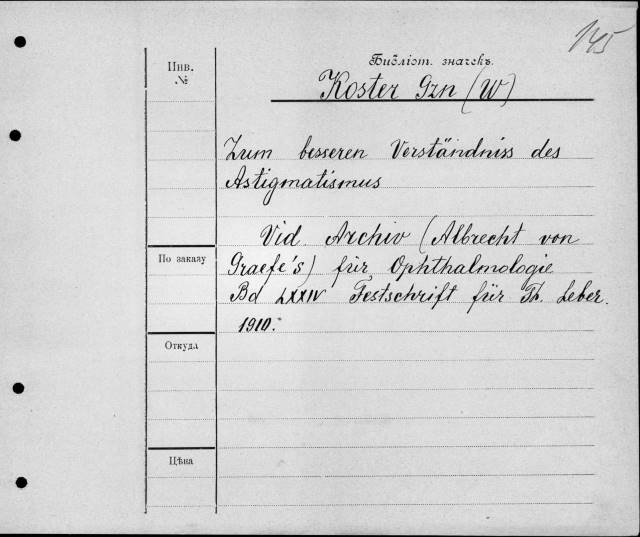 145
Инв.
№
Библіот. значекъ.
Koster Gzn (W)
Zum besseren Verständniss des
Astigmatismus
Vid. Archiv (Albrecht von
По заказу
Graefe's) für Ophthalmologie
Bd LXXIV Festschrift für Th. Leber.
1910.
Откуда
Цѣна